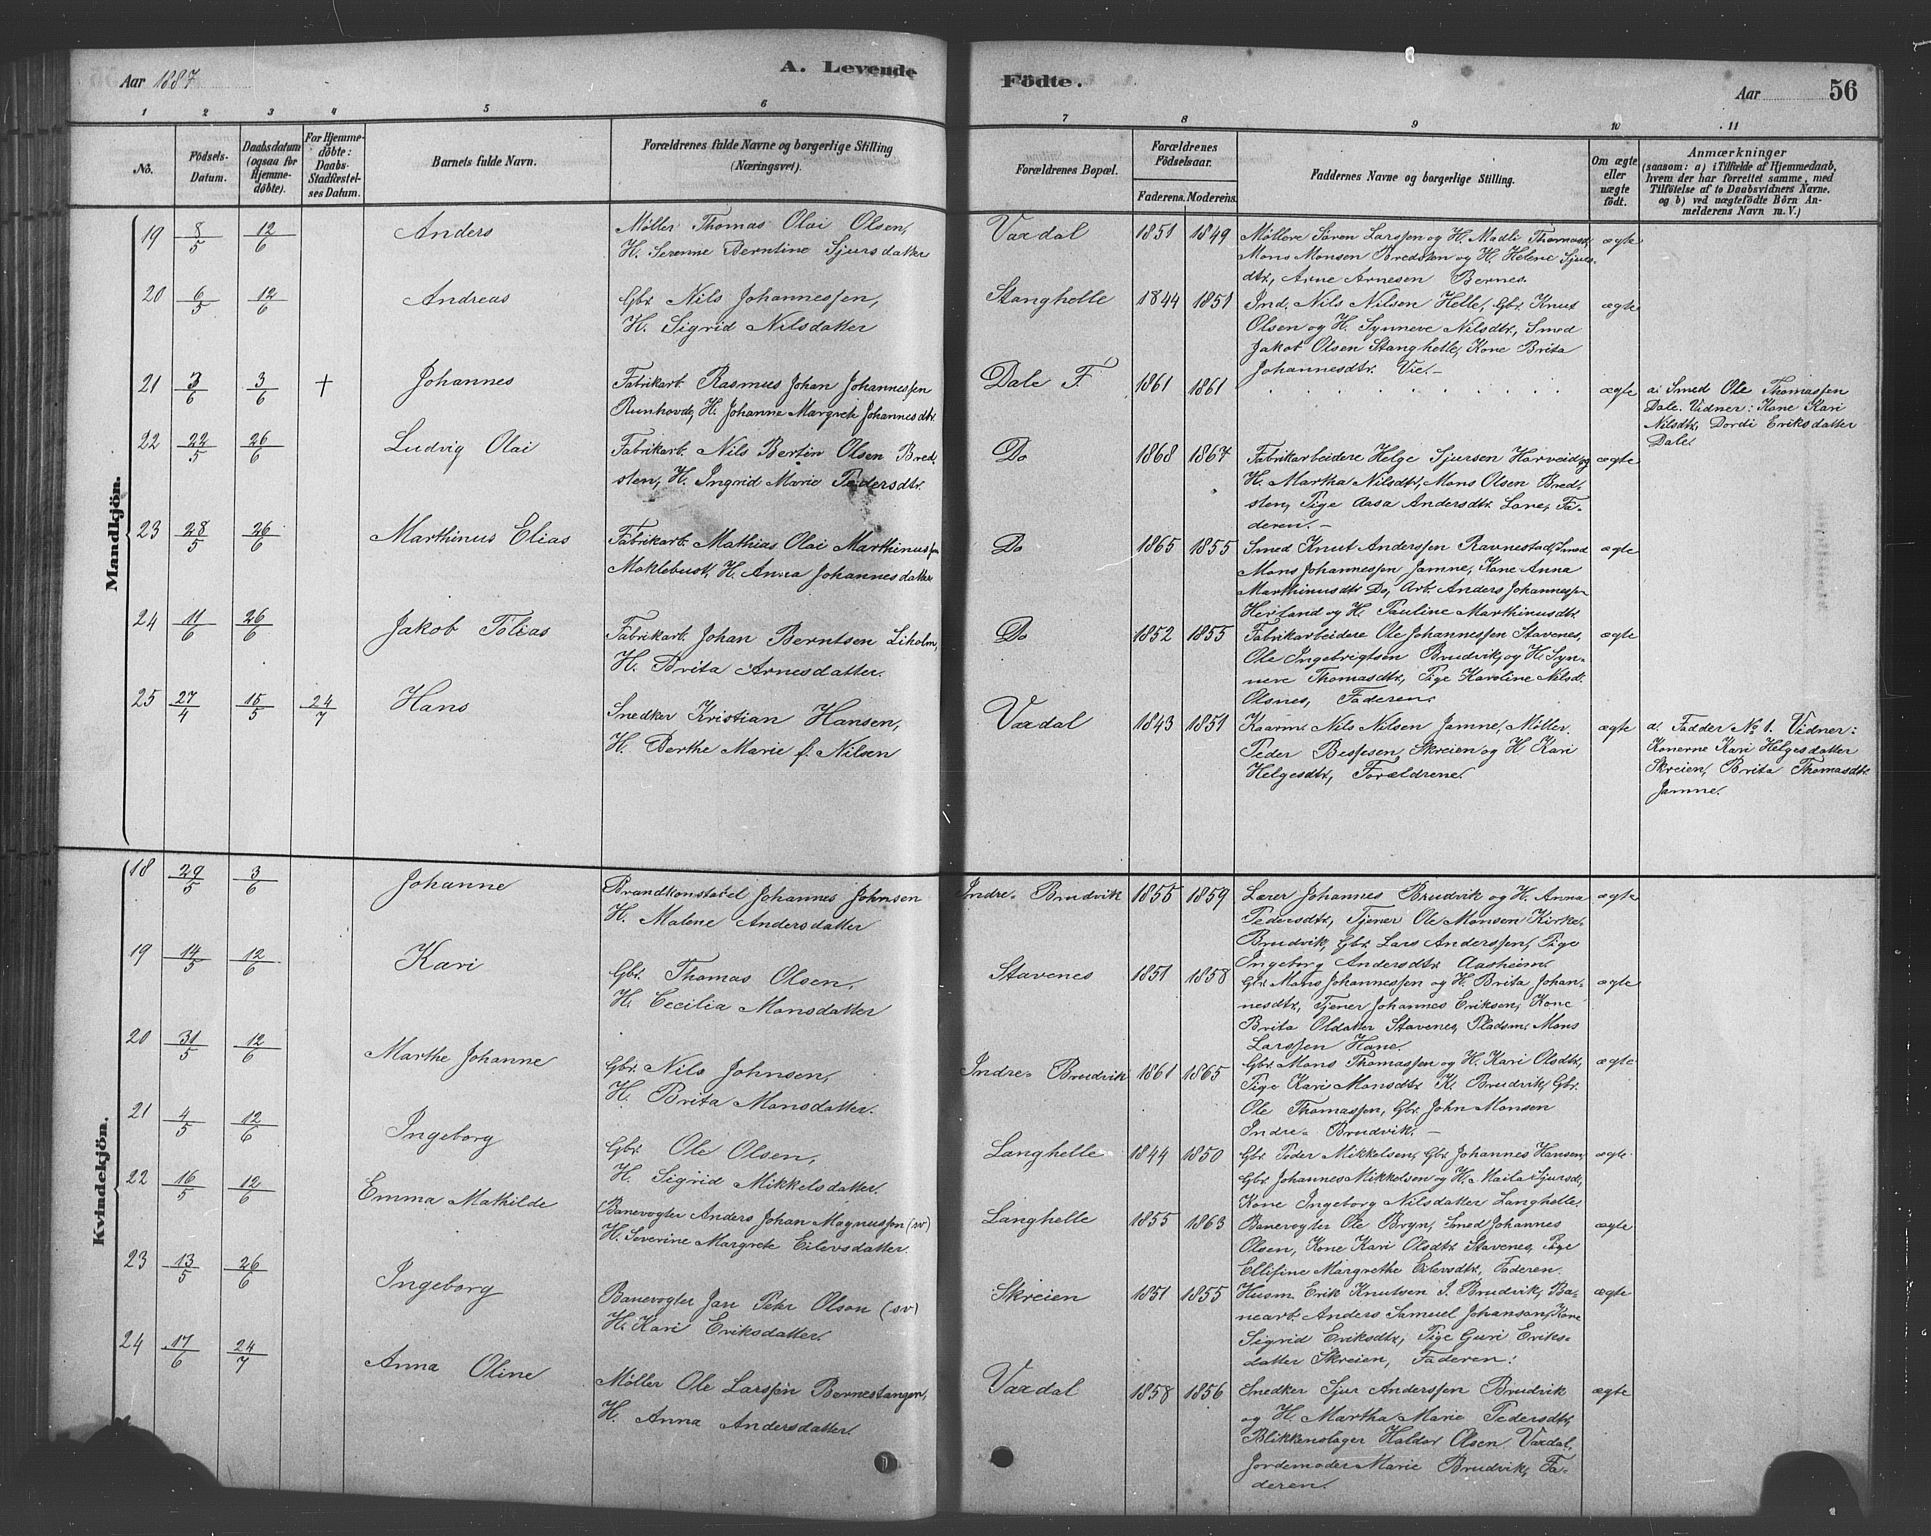 Aar 1887
A. Levende
Födte.
Aar
56
1 2 3 4 5 6 7 8 9 10 11
No.
Födsels-Datum.
Daabsdatum (ogsaa for Hjemme-döbte).
For Hjemme-döbte: Daabs-Stadfæstel-ses Datum.
Barnets fulde Navn.
Forældrenes fulde Navne og borgerlige Stilling (Næringsvei).
Forældrenes Bopæl.
Forældrenes Födselsaar.
Faderens. Moderens.
Faddernes Navne og borgerlige Stilling.
Om ægte eller uægte födt.
Anmærkninger
(saasom: a) i Tilfælde af Hjemmedaab,
hvem der har forrettet samme, med
Tilföielse af to Daabsvidners Navne.
og b) ved uægtefödte Börn An-
melderens Navn m. V.)
Mandkjön.
19 8/5 12/6 Anders
Møller Thomas Olai Olsen,
H. Serenne Berntine Sjursdatter
Vaxdal 1851 1849
Møllere Søren Larssen og H. Madli Thomasdt,
Mons Monsen Bredsten og H. Helene Sjurs-
dtr, Arne Arnesen Bernes.
ægte
20 6/5 12/6 Andreas
Gbr. Nils Johannessen,
H. Sigrid Nilsdatter
Stanghelle 1844 1851
Ind. Nils Nilsen Helle, Gbr. Knut
Olsen og H. Synneve Nilsdtr, Smed
Jakob Olsen Stanghelle, Kone Brita
Johannesdtr. Vie.-
ægte
21 3/6 3/6 + Johannes
Fabrikarb. Rasmus Johan Johannessen
Runhovde, H. Johanne Margrete Johannesdtr.
Dale F. 1861 1861
ægte
a. Smed Ole Thomassen
Dale. Vidner: Kone Kari
Nilsdtr, Dordi Eriksdatter
Dale.
22 22/5 26/6 Ludvig Olai
Fabrikarb. Nils Bertin Olsen Bred-
sten, H. Ingrid Marie Pedersdtr.
Do 1868 1867
Fabrikarbeidere Helge Sjursen Harveid og
H. Martha Nilsdtr, Mons Olsen Bred-
sten, Pige Aasa Andersdtr. Lone, Fa-
deren.-
ægte
23 28/5 26/6 Marthinus Elias
Fabrikarb. Mathias Olai Marthinussen
Moklebust, H. Anna Johannesdatter
Do 1865 1855
Smed Knut Anderssen Ravnestad, Smed
Mons Johannessen Jamne, Kone Anna
Marthinusdtr Do, Arb. Anders Johannessen
Herland og H. Pauline Marthinusdtr.
ægte
24 11/6 26/6 Jakob Tolias
Fabrikarb. Johan Berntsen Liholm,
H. Brita Arnesdatter.
Do 1852 1855
Fabrikarbeidere Ole Johannessen Stavenes,
Ole Ingebrigtsen Brudvik, og H. Syn-
neve Thomasdtr, Pige Karoline Nilsdt.
Olsnes, Faderen.
ægte
25 27/4 15/5 24/7 Hans
Snedker Kristian Hansen,
H. Berthe Marie f. Nilsen
Vaxdal 1843 1851
Kaarm. Nils Nilsen Jamne, Møller.
Peder Bessesen Skreien og H. Kari
Helgesdtr, Forældrene.
ægte
a. Fadder No 1. Vidner:
Konerne Kari Helgesdatter
Skreien, Brita Thomasdtr.
Jamne.
Kvindekjön.
18 29/5 3/6 Johanne
Brandkonstabel Johannes Johnsen
H. Malene Andersdatter
Indre Brudvik 1855 1859
Lærer Johannes Brudvik og H. Anna
Pedersdtr, Tjener Ole Monsen Kirke-
Brudvik, Gbr. Lars Anderssen, Pige
Ingeborg Andersdtr. Aasheim.
ægte
19 14/5 12/6 Kari
Gbr. Thomas Olsen,
H. Cecilia Monsdatter
Stavenes 1851 1858
Gbr. Mons Johannessen og H. Brita Johan-
nesdtr, Tjener Johannes Eriksen, Kone
Brita Oldatter Stavenes, Pladsm. Mons
Larssen Hane.
ægte
20 31/5 12/6 Marthe Johanne
Gbr. Nils Johnsen,
H. Brita Monsdatter.
Indre Brudvik 1861 1865
Gbr. Mons Thomassen og H. Kari Olsdtr,
Pige Kari Monsdtr. K. Brudvik, Gbr.
Ole Thomassen, Gbr. John Monsen
Indre Brudvik.-
ægte
21 4/5 12/6 Ingeborg
Gbr. Ole Olsen,
H. Sigrid Mikkelsdatter.
Langhelle 1844 1850
Gbr. Peder Mikkelsen, Gbr. Johannes Hansen
Gbr. Johannes Mikkelsen og H. Maila Sjursd.
Kone Ingeborg Nilsdatter Langhelle.
ægte
22 16/5 12/6 Emma Mathilde
Banevogter Anders Johan Magnussen (sv)
H. Severine Margrete Eilevsdatter.
Langhelle 1855 1863
Banevogter Ole Bryn, Smed Johannes
Olsen, Kone Kari Olsdtr. Stavenes, Pige
Ellisine Margrethe Eilevsdtr, Faderen.
ægte
23 13/5 26/6 Ingeborg
Banevogter Jan Peter Olson (sv)
H. Kari Eriksdatter.
Skreien 1851 1855
Husm. Erik Knutsen I. Brudvik, Ba-
nearb. Anders Samuel Johanson, Kone
Sigrid Eriksdtr, Pige Guri Eriks-
datter Skreien, Faderen.
ægte
24 17/6 24/7 Anna Oline
Møller Ole Larssen Bernestangen,
H. Anna Andersdatter.
Vaxdal 1858 1856
Snedker Sjur Anderssen Brudvik
og H. Martha Marie Pedersdtr,
Blikkenslager Haldor Olsen Vaxdal,
Jordemoder Marie Brudvik, Fa-
deren.
ægte